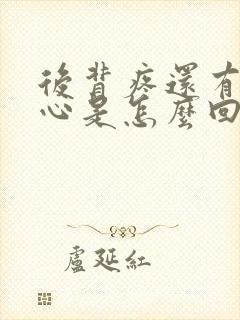 後背疼還有
心是怎麼回
盧延紅